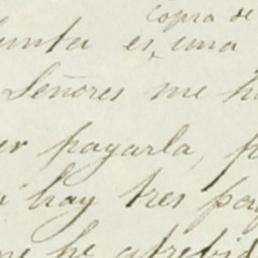 copia de
junta es, una
Señores me ha
er pagarla, p
i hay tres pag
me he atrevid